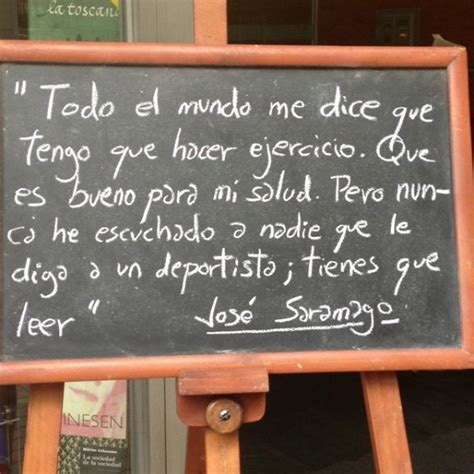 la toscana
" Todo el mundo me dice que
tengo que hacer ejercicio. Que
es bueno para mi salud. Pero nun-
ca he escuchado a nadie que le
diga a un deportista; tienes que
leer "
José Saramago.
INESEN
La sociedad
de la sociedad